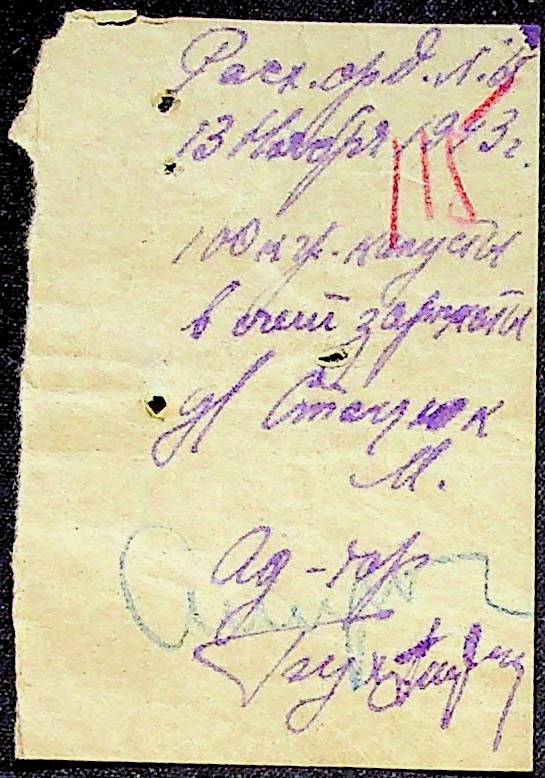 Расп. орд. л. 
13 Ноября 1943 г.
115
100 кг. капусты
в счет зарплаты
д/ Стацюк
М.
Ад-тор